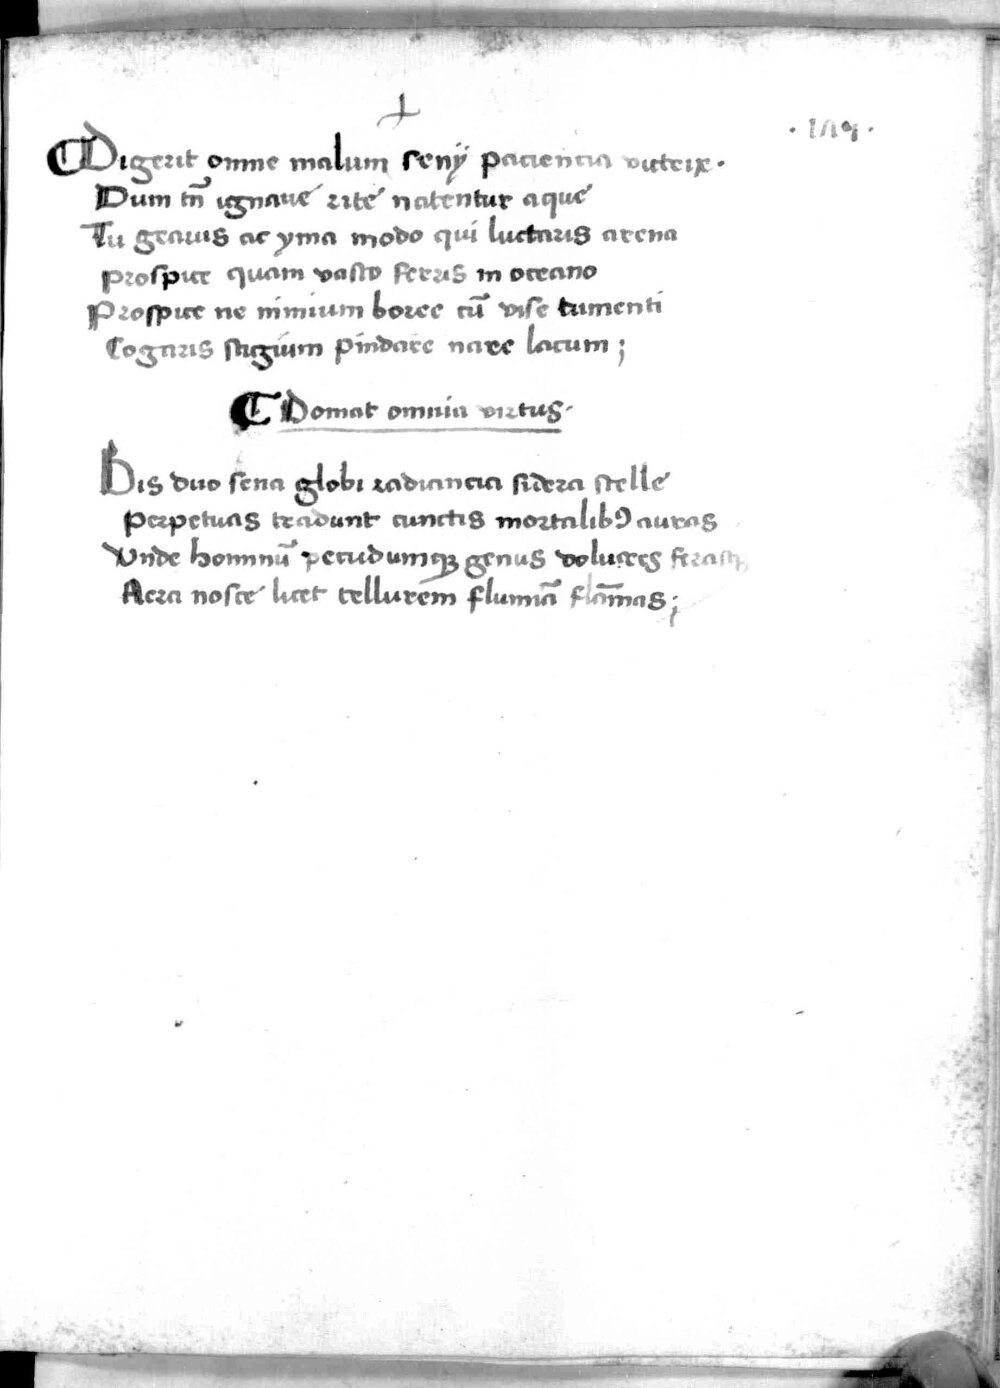 · 149 ·
Digerit omne malum senij paciencia victrix·
Dum tñ ignaue rite natentur aque
Tu grauis ac yma modo qui luctaris arena
Prospice quam vasto ferris in oceano
Prospice ne nimium boree cũ vise tumenti
Cogaris stigium pindare nare lacum ;
Domat omnia virtus·
Bis duo sena globi radiancia sidera stelle
Perpetuas tradunt cunctis mortalibꝰ auras
Vnde hominũ pecudumqꝫ genus volucres ferasqꝫ
Aera nosce licet tellurem flumĩa flãmas ;